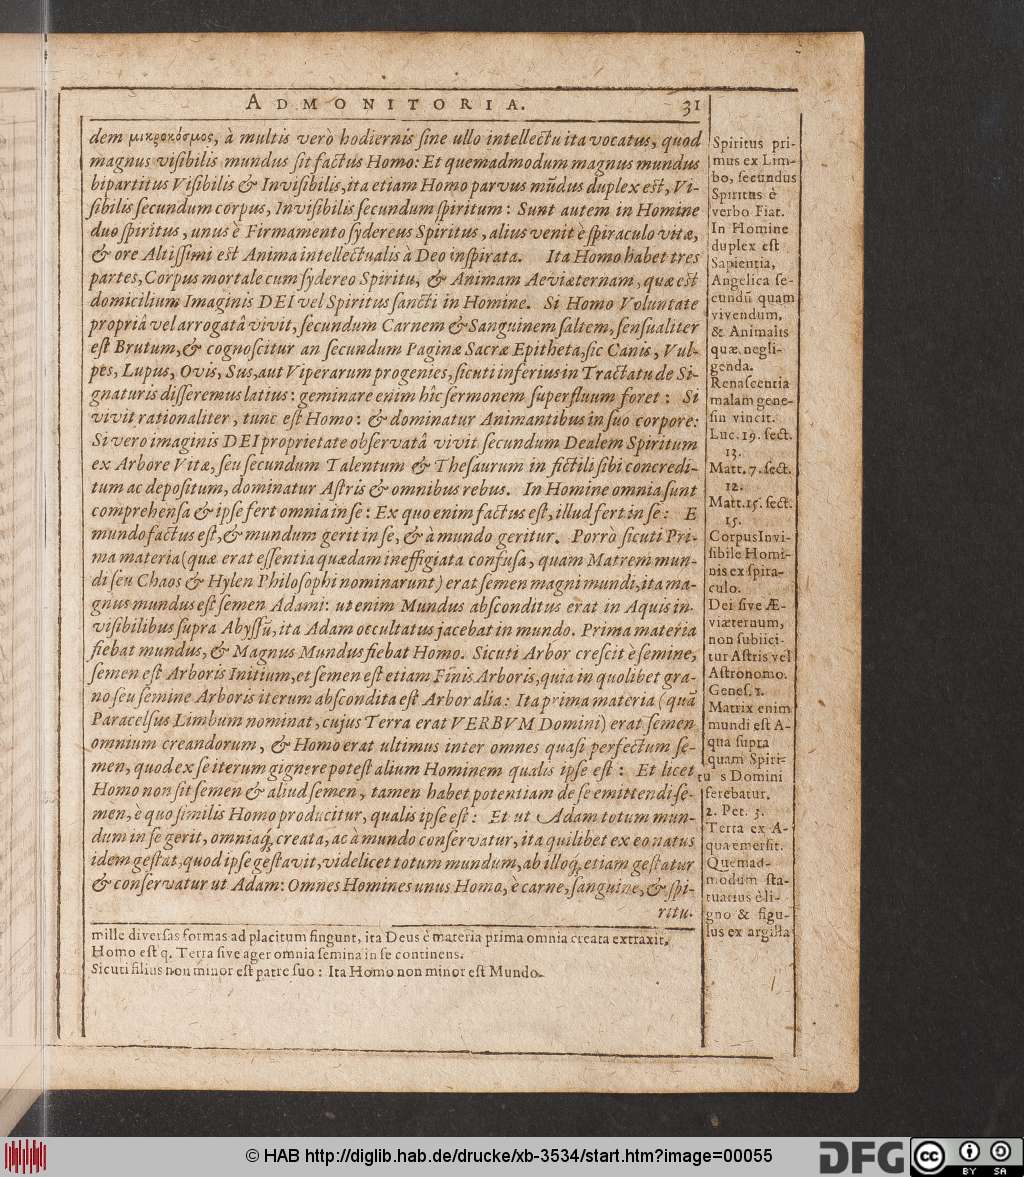 ADMONITORIA. 31
dem μικροκόσμος, à multis verò hodiernis ſine ullo intellectu ita vocatus, quod
magnus viſibilis mundus ſit factus Homo: Et quemadmodum magnus mundus
bipartitus Viſibilis & Inviſibilis, ita etiam Homo parvus mũdus duplex est, Vi-
ſibilis ſecundum corpus, Inviſibilis ſecundum ſpiritum: Sunt autem in Homine
duo ſpiritus, unus è Firmamento ſydereus Spiritus, alius venit è ſpiraculo vitæ,
& ore Altiſſimi est Anima intellectualis à Deo inſpirata. Ita Homo habet tres
partes, Corpus mortale cum ſydereo Spiritu, & Animam Aeviæternam, quæ est
domicilium Imaginis DEI vel Spiritus ſancti in Homine. Si Homo Voluntate
propriâ vel arrogatâ vivit, ſecundum Carnem & Sanguinem ſaltem, ſenſualiter
eſt Brutum, & cognoſcitur an ſecundum Paginæ Sacræ Epitheta, ſic Canis, Vul-
pes, Lupus, Ovis, Sus, aut Viperarum progenies, ſicuti inferius in Tractatu de Si-
gnaturis diſſeremus latius: geminare enim hîc ſermonem ſuperfluum foret: Si
vivit rationaliter, tunc eſt Homo: & dominatur Animantibus in ſuo corpore:
Si vero imaginis DEI proprietate obſervatâ vivit ſecundum Dealem Spiritum
ex Arbore Vitæ, ſeu ſecundum Talentum & Theſaurum in fictili ſibi concredi-
tum ac depoſitum, dominatur Aſtris & omnibus rebus. In Homine omnia ſunt
comprehenſa & ipſe fert omnia in ſe: Ex quo enim factus eſt, illud fert in ſe: E
mundo factus eſt, & mundum gerit in ſe, & à mundo geritur. Porrò ſicuti Pri-
ma materia (quæ erat eſſentia quædam ineffigiata confuſa, quam Matrem mun-
di ſeu Chaos & Hylen Philoſophi nominarunt) erat ſemen magni mundi, ita ma-
gnus mundus eſt ſemen Adami: ut enim Mundus abſconditus erat in Aquis in-
viſibilibus ſupra Abyſſũ, ita Adam occultatus jacebat in mundo. Prima materia
fiebat mundus, & Magnus Mundus fiebat Homo. Sicuti Arbor creſcit è ſemine,
ſemen eſt Arboris Initium, et ſemen eſt etiam Finis Arboris, quia in quolibet gra-
no ſeu ſemine Arboris iterum abſcondita eſt Arbor alia: Ita prima materia (quã
Paracelſus Limbum nominat, cujus Terra erat VERBVM Domini) erat ſemen
omnium creandorum, & Homo erat ultimus inter omnes quaſi perfectum ſe-
men, quod ex ſe iterum gignere poteſt alium Hominem qualis ipſe eſt: Et licet
Homo non ſit ſemen & aliud ſemen, tamen habet potentiam de ſe emittendi ſe-
men, è quo ſimilis Homo producitur, qualis ipſe eſt: Et ut Adam totum mun-
dum in ſe gerit, omniaq́; creata, ac à mundo conſervatur, ita quilibet ex eo natus
idem geſtat, quod ipſe geſtavit, videlicet totum mundum, ab illoq́; etiam geſtatur
& conſervatur ut Adam: Omnes Homines unus Homo, è carne, ſanguine, & ſpi-
ritu.
mille diverſas formas ad placitum fingunt, ita Deus è materia prima omnia creata extraxit,
Homo eſt q. Terra ſive ager omnia ſemina in ſe continens.
Sicuti filius non minor eſt patre ſuo: Ita Homo non minor eſt Mundo.
Spiritus pri-
mus ex Lim-
bo, ſecundus
Spiritus è
verbo Fiat.
In Homine
duplex eſt
Sapientia,
Angelica ſe-
cundũ quam
vivendum,
& Animalis
quæ negli-
genda.
Renaſcentia
malam gene-
ſin vincit.
Luc. 19. ſect.
13.
Matt. 7. ſect.
12.
Matt. 15. ſect.
15.
Corpus Invi-
ſibile Homi-
nis ex ſpira-
culo.
Dei ſive Æ-
viæternum,
non ſubiici-
tur Aſtris vel
Aſtronomo.
Geneſ. 1.
Matrix enim
mundi eſt A-
qua ſupra
quam Spiri-
tu s Domini
ferebatur.
2. Pet. 3.
Terra ex A-
qua emerſit.
Quemad-
modum ſta-
tuarius è li-
gno & figu-
lus ex argilla
© HAB http://diglib.hab.de/drucke/xb-3534/start.htm?image=00055
DFG
cc BY SA